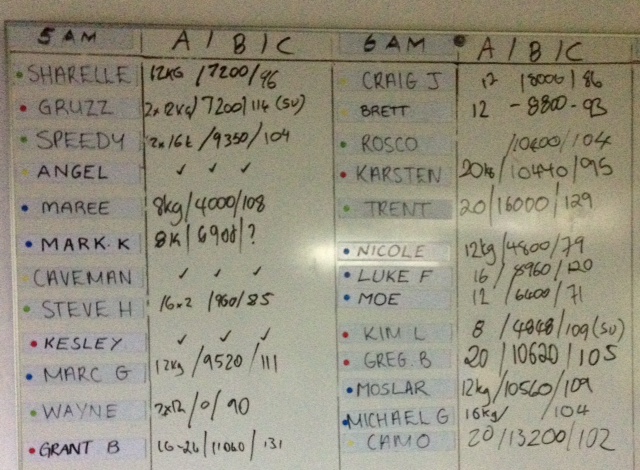 5 AM A / B / C
SHARELLE 12KG / 7200 / 96
GRUZZ 2x12KG / 7200 / 114 (SU)
SPEEDY 2x16K / 9350 / 104
ANGEL ✓ ✓ ✓
MAREE 8kg / 4000 / 108
MARK. K 8K / 6900 / ?
CAVEMAN ✓ ✓ ✓
STEVE H 16x2 / 960 / 85
KESLEY ✓ ✓ ✓
MARC G 12kg / 9520 / 111
WAYNE 2x12 / 0 / 90
GRANT B 16-24 / 11060 / 131
6 AM A / B / C
CRAIG J 12 / 8000 / 86
BRETT 12 - 8800 - 93
ROSCO / 10400 / 104
KARSTEN 20kg / 10440 / 95
TRENT 20 / 16000 / 129
NICOLE 12kg / 4800 / 79
LUKE F 16 / 8960 / 120
MOE 12 / 6400 / 71
KIM L 8 / 4848 / 109 (SU)
GREG. B 20 / 10620 / 105
MOSLAR 12kg / 10560 / 109
MICHAEL G 16kg / / 104
CAMO 20 / 13200 / 102